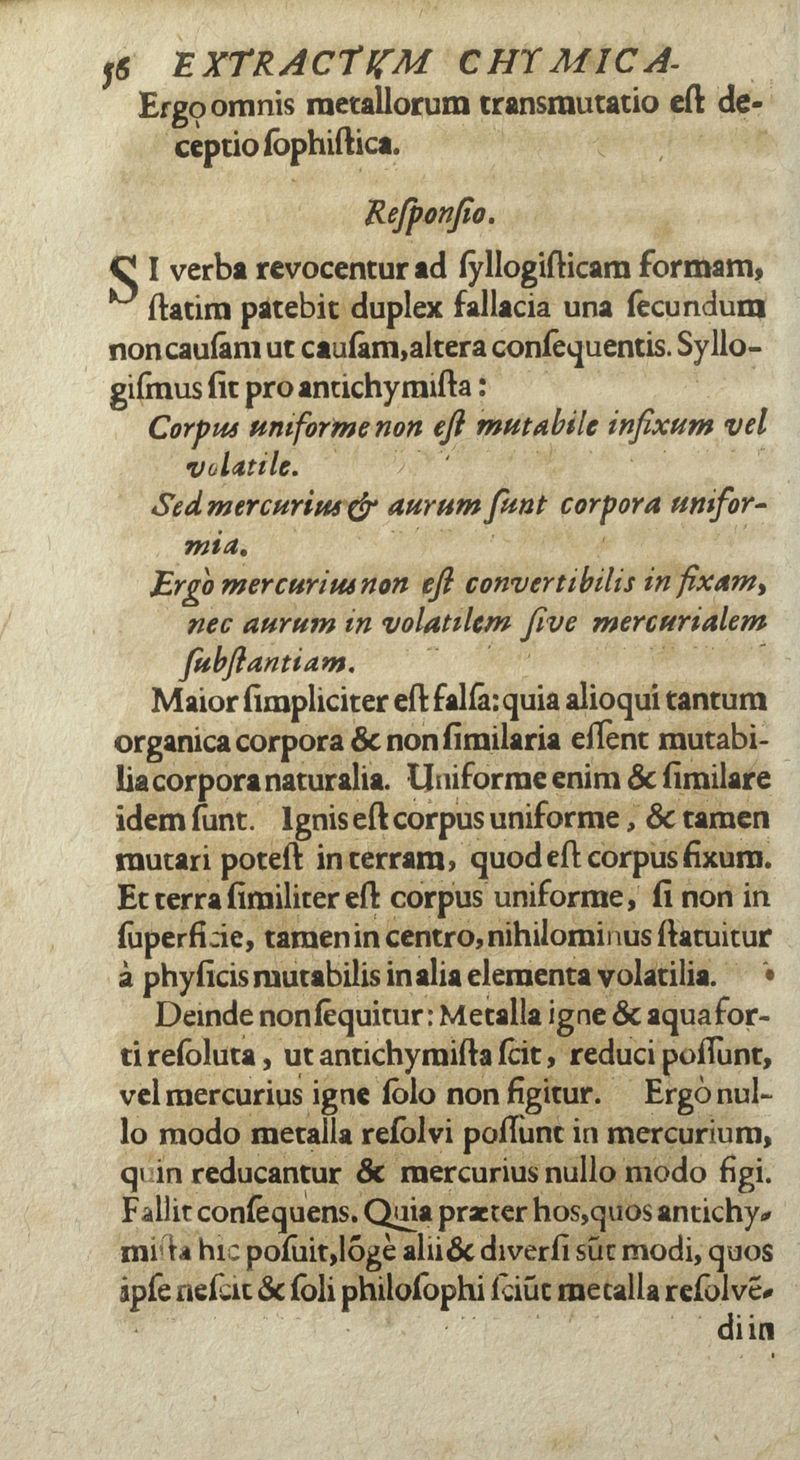 56 EXTRACTVM CHYMICA-
Ergo omnis metallorum transmutatio eſt de-
ceptio ſophiſtica.
Reſponſio.
SI verba revocentur ad ſyllogiſticam formam,
ſtatim patebit duplex fallacia una ſecundum
non cauſam ut cauſam, altera conſequentis. Syllo-
giſmus ſit pro antichymiſta:
Corpus uniforme non eſt mutabile in fixum vel
volatile.
Sed mercurius & aurum ſunt corpora unifor-
mia.
Ergò mercurius non eſt convertibilis in fixam,
nec aurum in volatilem ſive mercurialem
ſubſtantiam.
Maior ſimpliciter eſt falſa: quia alioqui tantum
organica corpora & non ſimilaria eſſent mutabi-
lia corpora naturalia. Uniforme enim & ſimilare
idem ſunt. Ignis eſt corpus uniforme, & tamen
mutari poteſt in terram, quod eſt corpus fixum.
Et terra ſimiliter eſt corpus uniforme, ſi non in
ſuperficie, tamen in centro, nihilominus ſtatuitur
à phyſicis mutabilis in alia elementa volatilia.
Deinde non ſequitur: Metalla igne & aqua for-
ti reſoluta, ut antichymiſta ſcit, reduci poſſunt,
vel mercurius igne ſolo non figitur. Ergò nul-
lo modo metalla reſolvi poſſunt in mercurium,
quin reducantur & mercurius nullo modo figi.
Fallit conſequens. Quia præter hos, quos antichy-
miſta hic poſuit, lõgè alii & diverſi sũt modi, quos
ipſe neſcit & ſoli philoſophi ſciũt metalla reſolvẽ-
di in